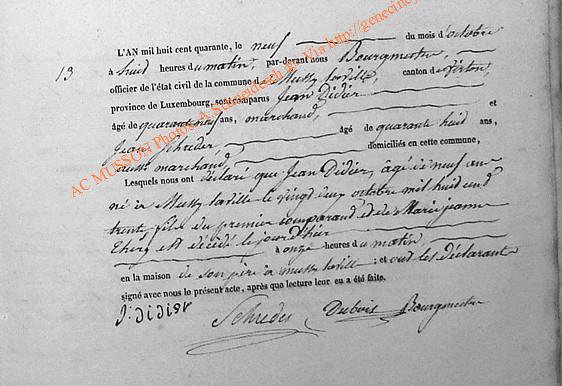 13
L'AN mil huit cent quarante, le neuf du mois d'octobre
à huit heures du matin, par-devant nous Bourgmestre,
officier de l'état civil de la commune de Mussy laville, canton de Virton,
province de Luxembourg, sont comparus Jean Didier
âgé de quarante neuf ans, marchand, et
Jean Schreder, âgé de quarante huid ans,
aussi marchand, domiciliés en cette commune,
Lesquels nous ont déclaré que Jean Didier, âgé de neuf ans
né à Mussy laville le vingt deux octobre mil huid cend
trent, fils du premier comparand et de Marie jeanne
est décédé le jour d'hier
à onze heures du matin,
en la maison de son père à mussy laville; et ont les déclarant
signé avec nous le présent acte, après que lecture leur en a été faite.
J: Didier Schreder Dubois Bourgmestre
AC MUSSON Photos: A Schneider Via http://geneciney